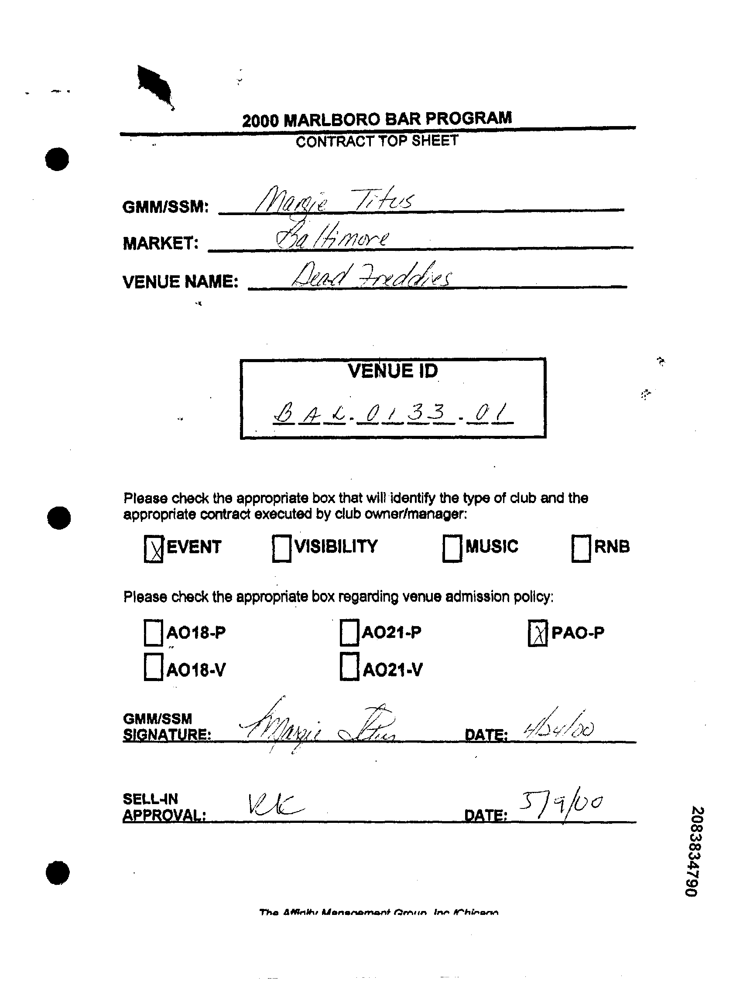 2000 MARLBORO BAR PROGRAM
CONTRACT TOP SHEET
GMM/SSM: Margie Titus
MARKET: Baltimore
VENUE NAME: Dead Freddies
VENUE ID
BAL.0133.01
Please check the appropriate box that will identify the type of club and the
appropriate contract executed by club owner/manager:
X EVENT VISIBILITY MUSIC RNB
Please check the appropriate box regarding venue admission policy:
AO18-P AO21-P X PAO-P
AO18-V AO21-V
GMM/SSM
SIGNATURE: Margie Titus DATE: 4/24/00
SELL-IN
APPROVAL: DATE: 5/9/00
2083834790
The Affinity Management Group, Inc./Chicago